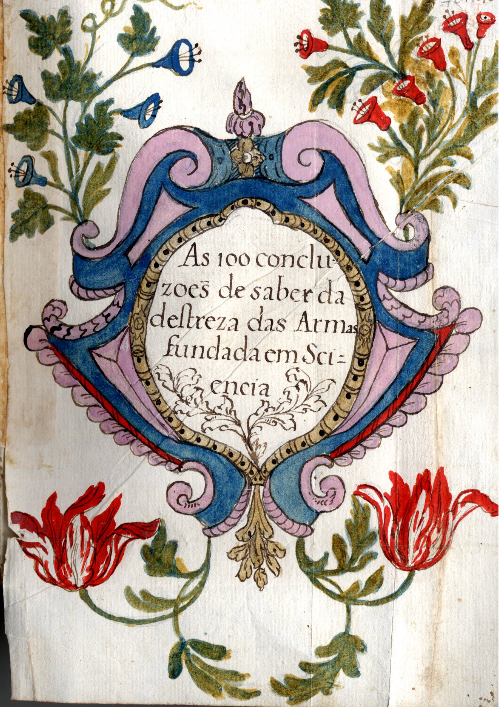 As 100 conclu-
zoes̃ de saber da
destreza das Armas
fundada em Sci=
encia